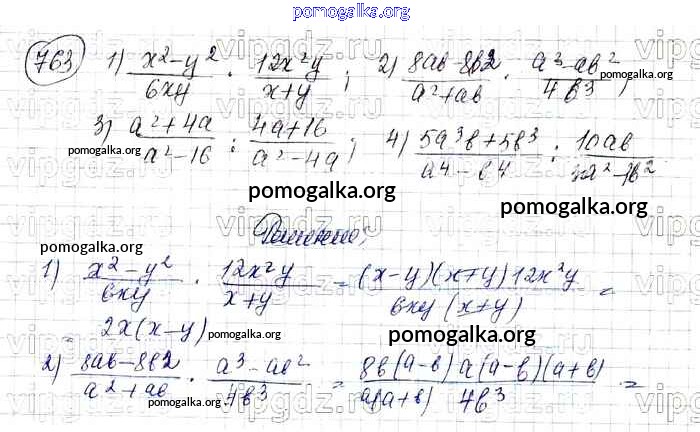 pomogalka.org
763 1) (x²-y²)/(6xy) · (12x²y)/(x+y); 2) (8ab-8b2)/(a²+ab) · (a³-ab²)/(4b³)
3) (a²+4a)/(a²-16) : (4a+16)/(a²-4a); 4) (5a³b+5b³)/(a4-b4) : 10ab
pomogalka.org pomogalka.org
Решение:
pomogalka.org
1) (x²-y²)/(6xy) · (12x²y)/(x+y) = ((x-y)(x+y)12x²y)/(6xy(x+y)) =
= 2x(x-y)
pomogalka.org pomogalka.org
2) (8ab-8b2)/(a2+ab) · (a³-ab²)/(4b³) = (8b(a-b) a(a-b)(a+b))/(a(a+b) 4b³) =
pomogalka.org